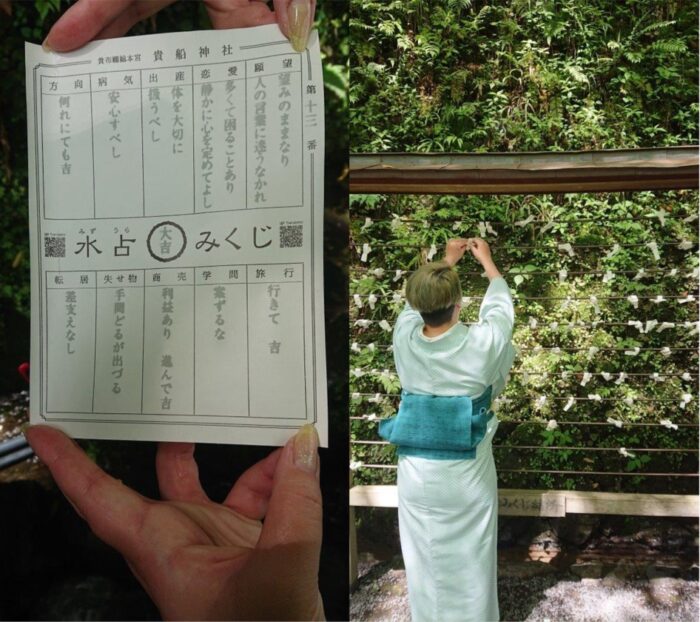 貴布禰総本宮 貴船神社
第十三番
願望 望みのままなり 人の言葉に迷うなかれ
恋愛 多くて困ることあり 静かに心を定めてよし
出産 体を大切に 扱うべし
病気 安心すべし
方向 何れにても吉
みず うら
水占 大吉 みくじ
旅行 行きて 吉
学問 案ずるな
商売 利益あり 進んで吉
失せ物 手間どるが出づる
転居 差支えなし
みくじ